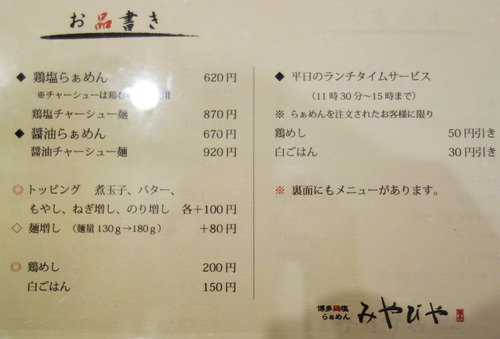 お品書き
◆ 鶏塩らぁめん 620円
※チャーシューは鶏む 用
鶏塩チャーシュー麺 870円
◆ 醤油らぁめん 670円
醤油チャーシュー麺 920円
◎ トッピング 煮玉子、バター、
もやし、ねぎ増し、のり増し 各+100円
◇ 麺増し (麺量130g→180g) +80円
◎ 鶏めし 200円
白ごはん 150円
◆ 平日のランチタイムサービス
(11時30分~15時まで)
※ らぁめんを注文されたお客様に限り
鶏めし 50円引き
白ごはん 30円引き
※ 裏面にもメニューがあります。
博多鶏塩
らぁめん
みやびや